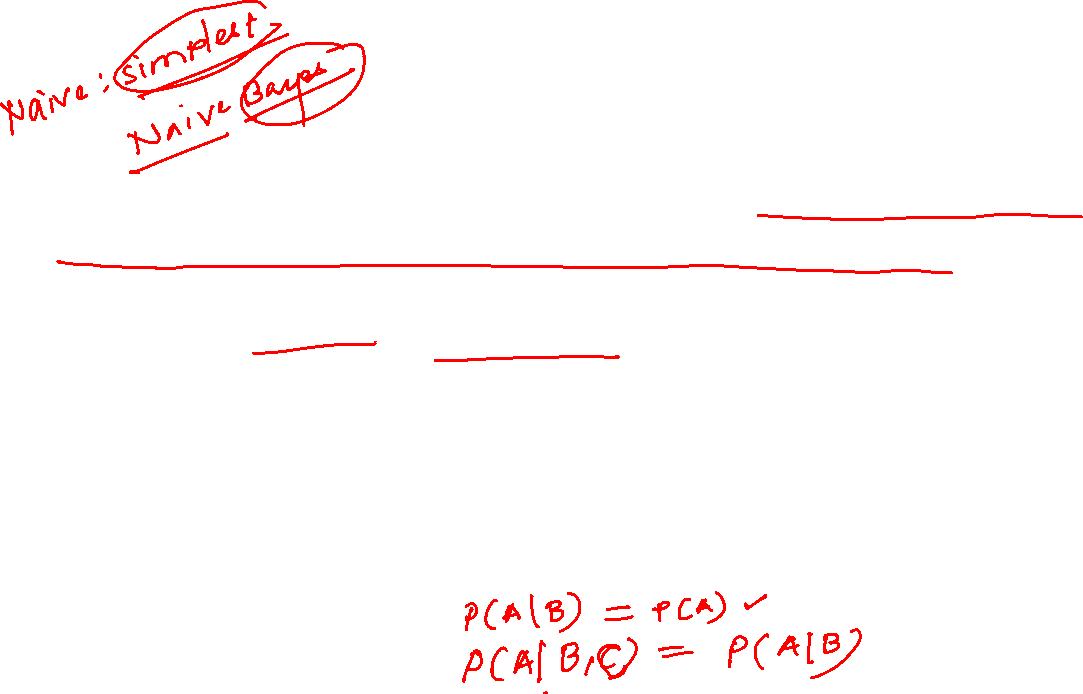 Naive: simplest
Naive Bayes
P(A|B) = P(A) ✓
P(A|B,C) = P(A|B)